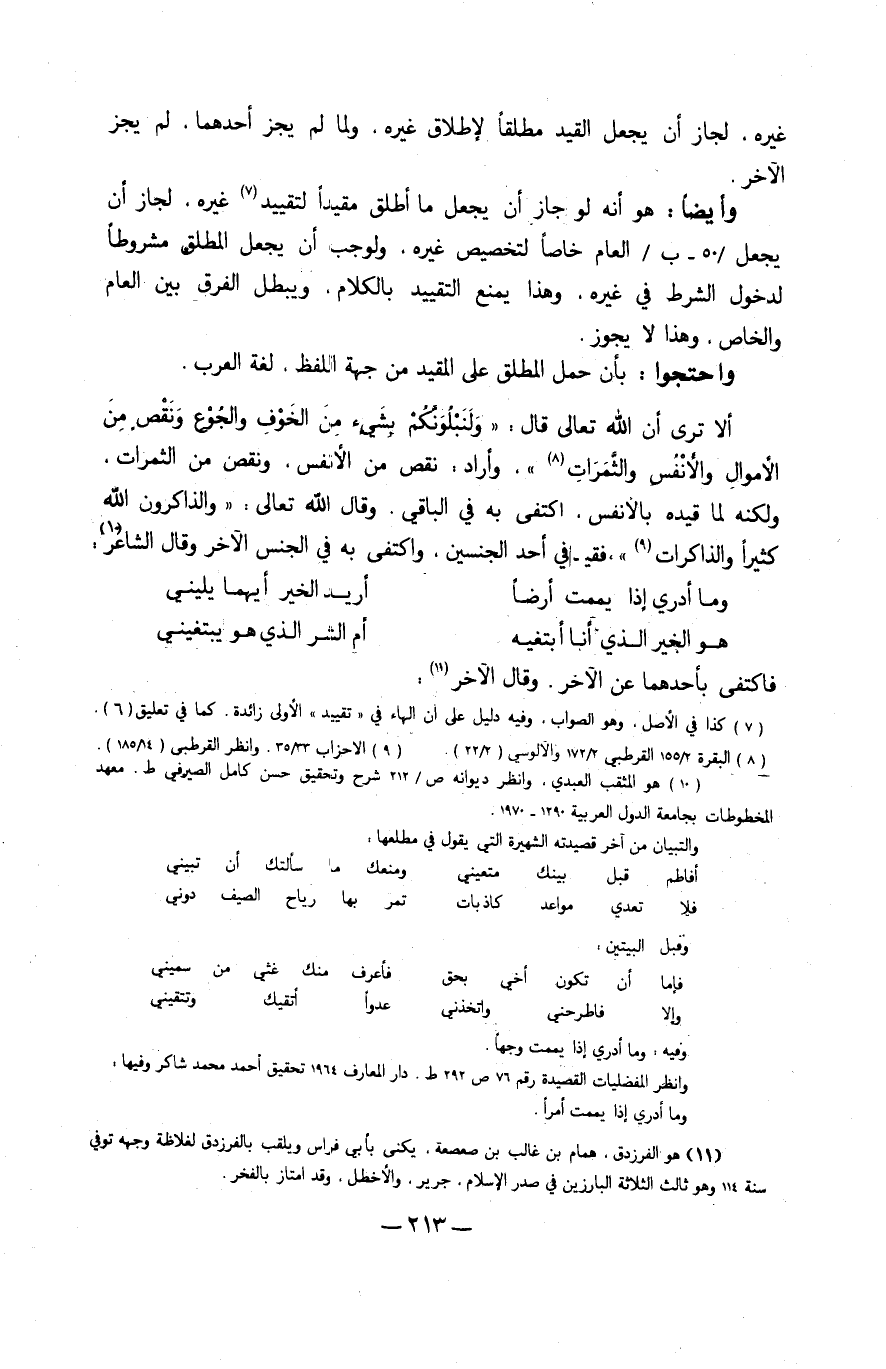 غيره، لجاز أن يجعل القيد مطلقاً لإطلاق غيره، ولما لم يجز أحدهما، لم يجز
الآخر.
وأيضاً: هو أنه لو جاز أن يجعل ما أطلق مقيداً لتقييد(٧) غيره، لجاز أن
يجعل /٥٠ - ب / العام خاصاً لتخصيص غيره، ولوجب أن يجعل المطلق مشروطاً
لدخول الشرط في غيره، وهذا يمنع التقييد بالكلام، ويبطل الفرق بين العام
والخاص، وهذا لا يجوز.
واحتجوا: بأن حمل المطلق على المقيد من جهة اللفظ، لغة العرب.
ألا ترى أن الله تعالى قال: « وَلَنَبْلُوَنَّكُمْ بِشَيْءٍ مِنَ الخَوْفِ والجُوْعِ وَنَقْصٍ مِنَ
الأموالِ والأنْفُسِ والثَّمَرَاتِ(٨) »، وأراد: نقص من الأنفس، ونقص من الثمرات،
ولكنه لما قيده بالأنفس، اكتفى به في الباقي. وقال الله تعالى: « والذاكرون الله
كثيراً والذاكرات(٩) »، في أحد الجنسين، واكتفى به في الجنس الآخر وقال الشاعر(١٠):
وما أدري إذا يممت أرضاً أريد الخير أيهما يليني
هو الخير الذي أنا أبتغيه أم الشر الذي هو يبتغيني
فاكتفى بأحدهما عن الآخر. وقال الآخر(١١):
(٧) كذا في الأصل، وهو الصواب، وفيه دليل على أن الهاء في « تقييد » الأولى زائدة. كما في تعليق (٦).
(٨) البقرة ١٥٥/٢ القرطبي ١٧٢/٢ والآلوسي (٢٢/٢). (٩) الاحزاب ٣٥/٣٣. وانظر القرطبي (١٨٥/١٤).
(١٠) هو المثقب العبدي، وانظر ديوانه ص/ ٢١٢ شرح وتحقيق حسن كامل الصيرفي ط. معهد
المخطوطات بجامعة الدول العربية ١٣٩٠ - ١٩٧٠.
والتبيان من آخر قصيدته الشهيرة التي يقول في مطلعها:
أفاطم قبل بينك متعيني ومنعك ما سألتك أن تبيني
فلا تعدي مواعد كاذبات تمر بها رياح الصيف دوني
وقبل البيتين:
فإما أن تكون أخي بحق فأعرف منك غثي من سميني
وإلا فاطرحني واتخذني عدواً أتقيك وتتقيني
وفيه: وما أدري إذا يممت وجهاً.
وانظر المفضليات القصيدة رقم ٧٦ ص ٢٩٢ ط. دار المعارف ١٩٦٤ تحقيق أحمد محمد شاكر وفيها:
وما أدري إذا يممت أمراً.
(١١) هو الفرزدق، همام بن غالب بن صعصعة، يكنى بأبي فراس ويلقب بالفرزدق لغلاظة وجهه توفي
سنة ١١٤ وهو ثالث الثلاثة البارزين في صدر الإسلام، جرير، والأخطل، وقد امتاز بالفخر.
— ٢١٣ —